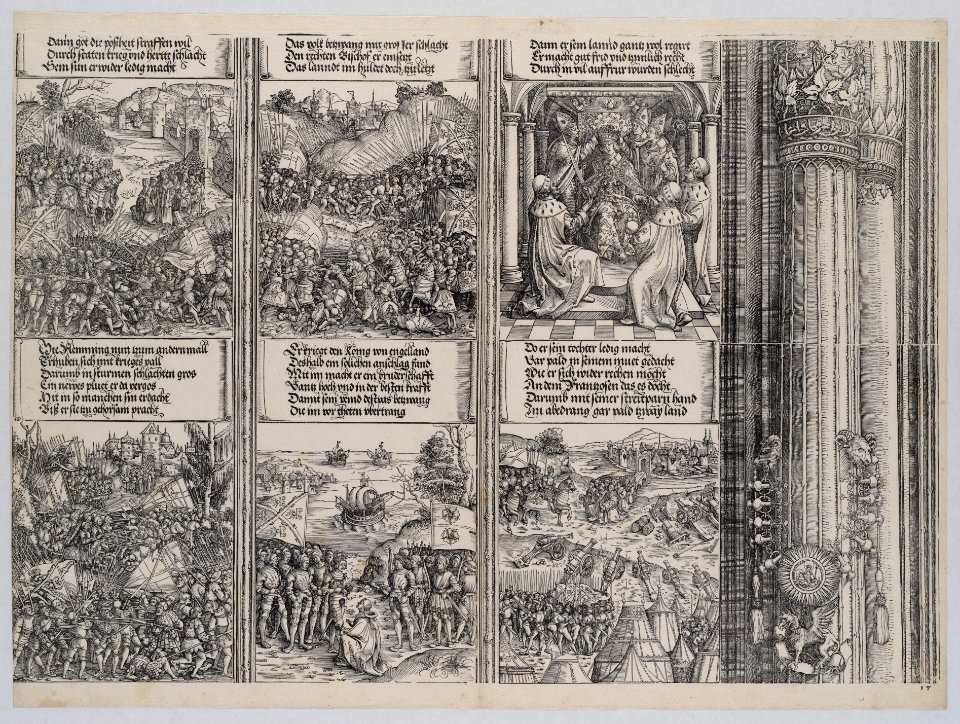 Dann got die poßheit straffen wil
Durch steten krieg vnd herttt schlacht
Sein sun er wider ledig macht
Das volk betzwang mit grosser schlacht
Den rechten Bischof er einsetzt
Das lanndt im huldet doch zu letzt
Dann er sein lannd gantz wol regirt
Er macht gut frid vnd zymlich recht
Durch in vil auffrur wurden schlecht
Die Flemming nun zum andern mall
Erhuben sich mit krieges vall
Darumb in sturmen schlachten gros
Ein newes pluet er da vergos
Mit in so manchen sin erdacht
Biß er sie zu gehorsam pracht
Er kriegt den König von engelland
Deshalb ein solichen anschlag fand
Mit im macht er ein bruderschafft
Gantz hoch vnd in der besten krafft
Damit sein veind destbas betzwang
Die im vor theten vbertrang
Do er sein tochter ledig macht
War pald in seinem muet gedacht
Wie er sich wider rechen möcht
An dem Frantzosen das es döcht
Darumb mit seiner streitparn hand
Im abedrang gar pald tzway land